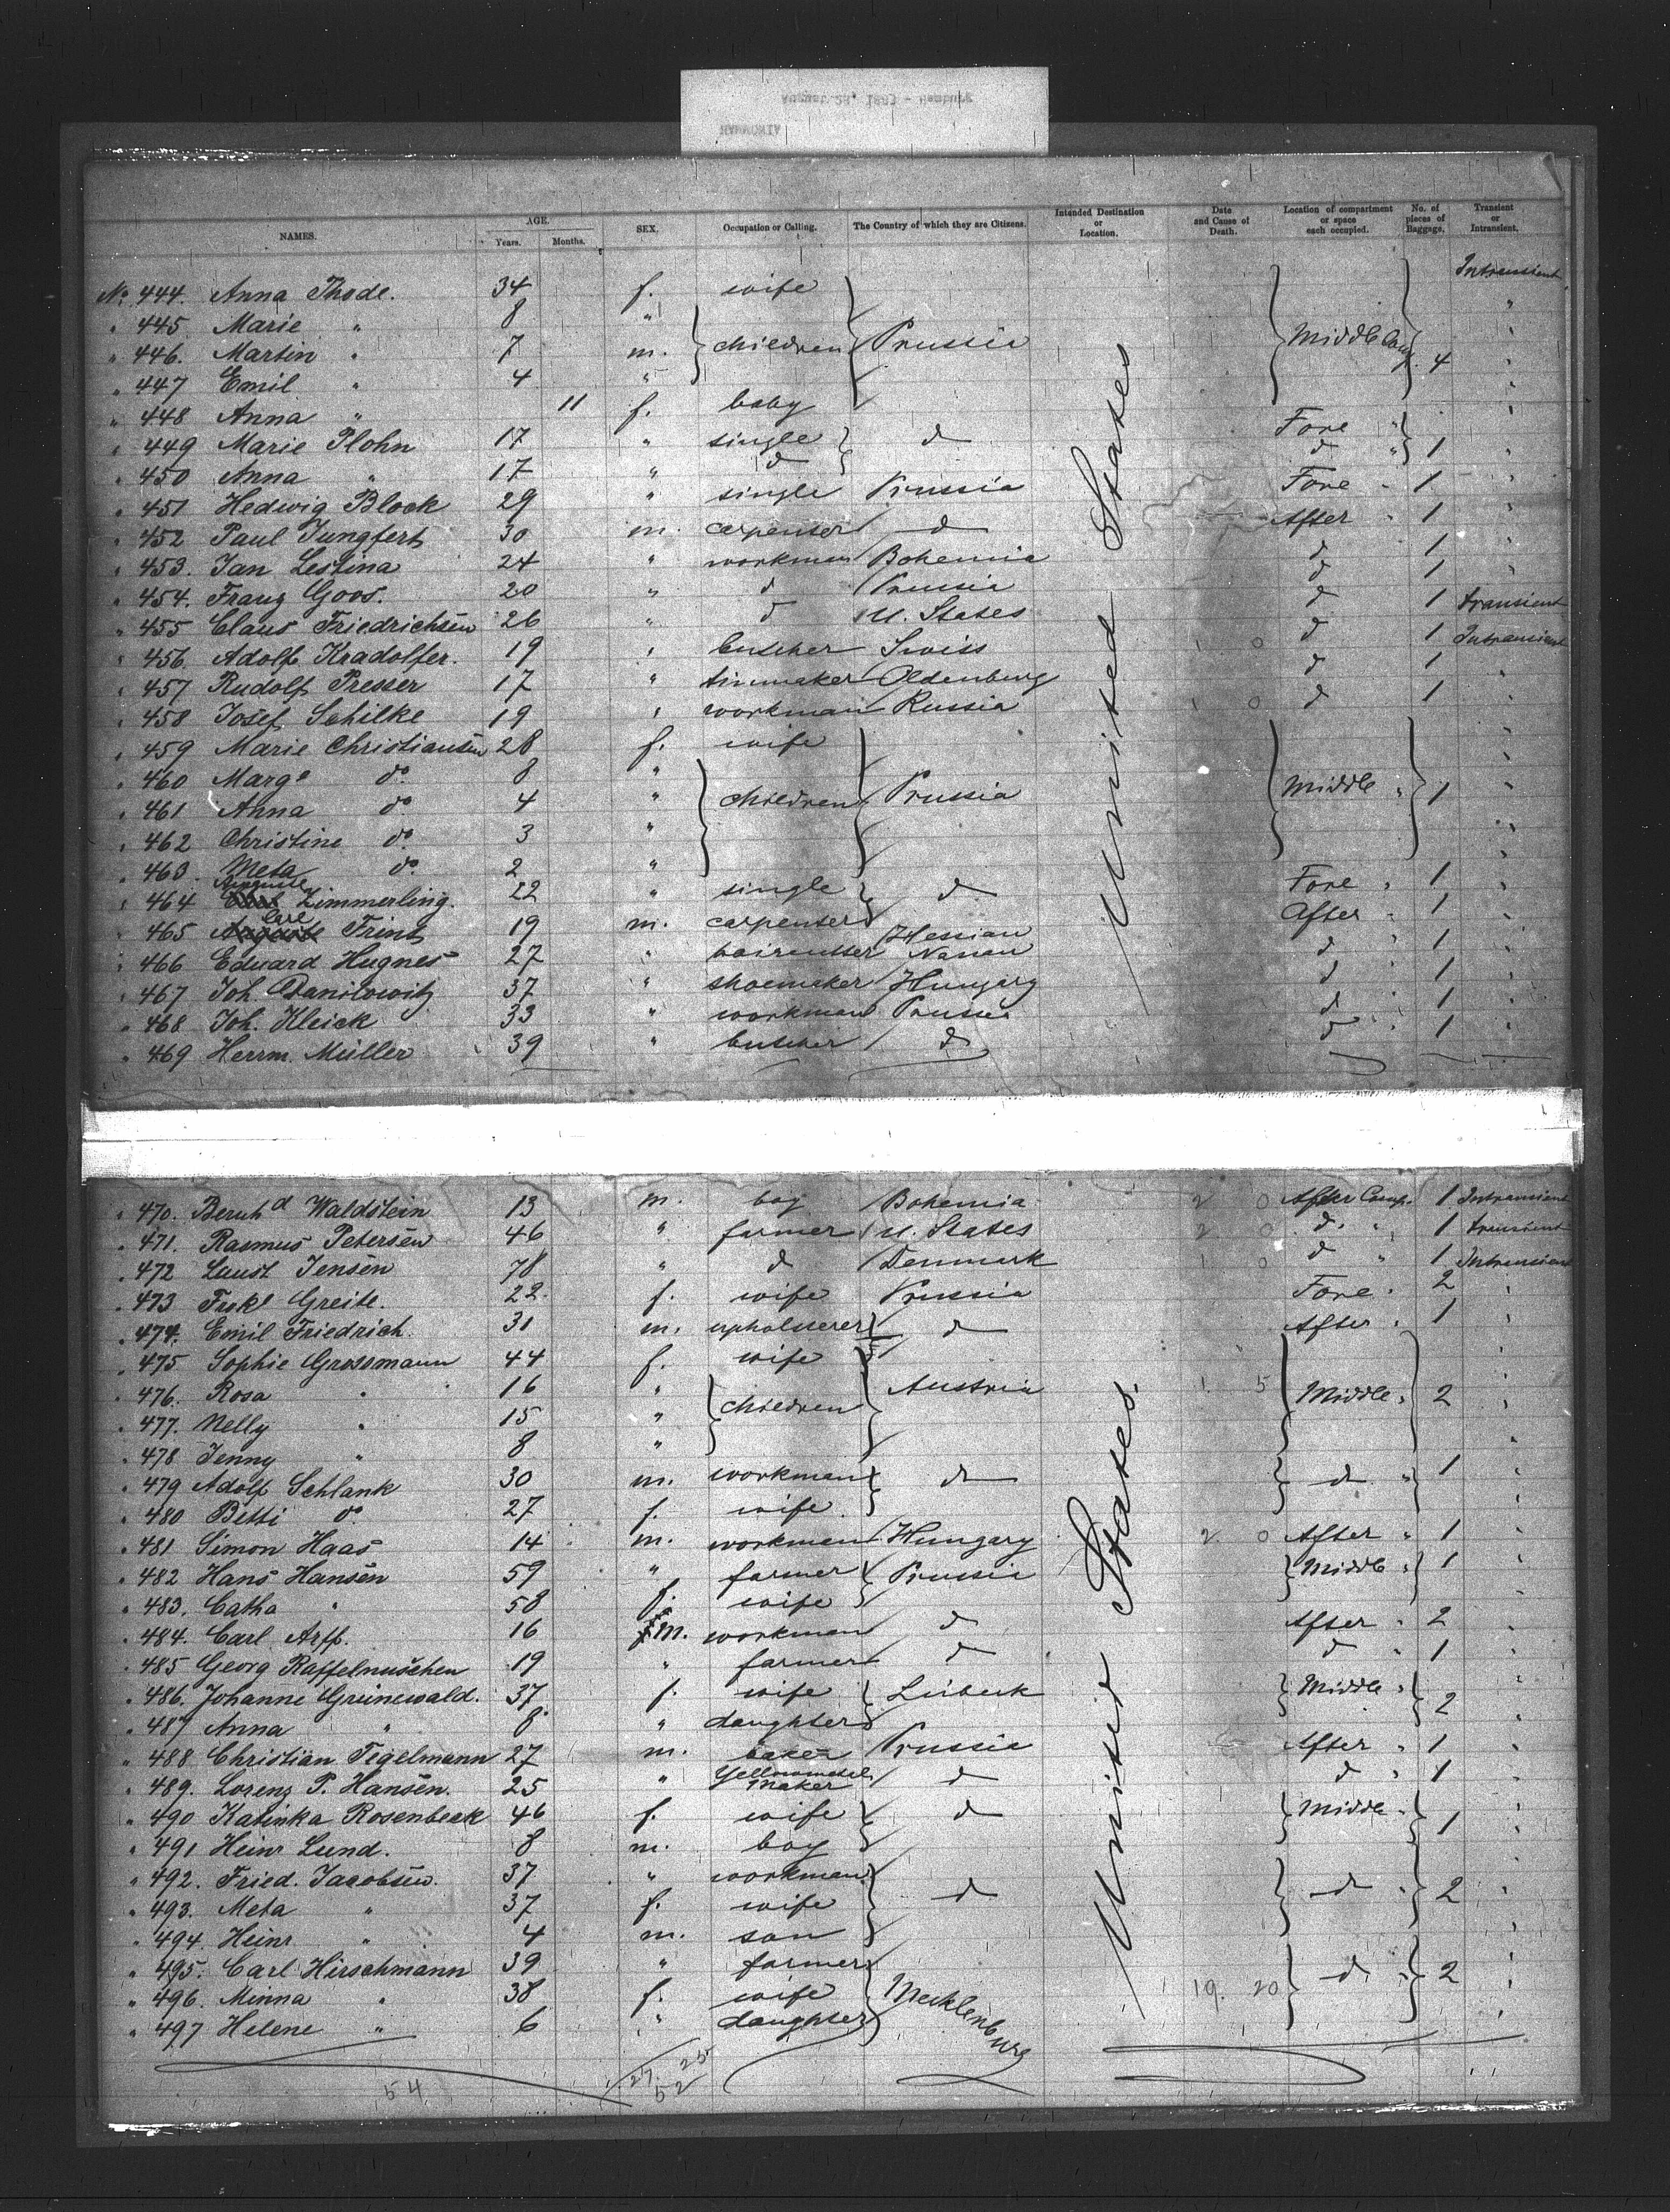 August 28, 1883 - Hamburg
HAMMONIA
NAMES. AGE. Years. Months. SEX. Occupation or Calling. The Country of which they are Citizens. Intended Destination or Location. Date and Cause of Death. Location of compartment or space each occupied. No. of pieces of Baggage. Transient or Intransient.
No. 444. Anna Thode. 34 f. wife Intransient
" 445 Marie " 8 " "
" 446. Martin " 7 m. children Prussia Middle Comp. 4 "
" 447 Emil " 4 " "
" 448 Anna " 11 f. baby "
" 449 Marie Plohn 17 " single d Fore "
" 450 Anna " 17 " d d " 1 "
" 451 Hedwig Block 29 " single Prussia Fore " 1 "
" 452 Paul Jungfert 30 m. carpenter d After " 1 "
" 453. Jan Lestina 24 " workman Bohemia d 1 "
" 454. Franz Goos. 20 " d Prussia d 1 "
" 455 Claus Friedrichsen 26 " d U. States d 1 transient
" 456. Adolf Kradolfer. 19 " butcher Swiss 1 0 d 1 Intransient
" 457 Rudolf Presser 17 " tinmaker Oldenburg d 1 "
" 458 Josef Schilke 19 " workman Russia 1 0 d 1 "
" 459 Marie Christiansen 28 f. wife "
" 460 Marge do. 8 " "
" 461 Anna do. 4 " children Prussia Middle " 1 "
" 462 Christine do. 3 " "
" 463. Meta do. 2 " "
" 464 Auguste Zimmerling. 22 " single d Fore " 1 "
" 465 Carl Frint 19 m. carpenter After " 1 "
" 466 Eduard Hugnes 27 " haircutter Hessian Nassau d " 1 "
" 467 Joh. Danilowitz 37 " shoemaker Hungary d " 1 "
" 468 Joh. Kleick 33 " workman Prussia d " 1 "
" 469 Herrm. Müller 39 " butcher d d " 1 "
United States
" 470. Bernhd Waldstein 13 m. boy Bohemia 2 0 After Comp. 1 Intransient
" 471. Rasmus Petersen 46 " farmer U. States 2 0 d " 1 transient
" 472 Laust Jensen 78 " d Denmark 1 0 d " 1 Intransient
" 473 Greite. 22. f. wife Prussia Fore " 2 "
" 474. Emil Friedrich. 31 m. upholsterer d After " 1 "
" 475 Sophie Grossmann 44 f. wife "
" 476. Rosa " 16 " children Austria 1 5 Middle " 2 "
" 477. Nelly " 15 " "
" 478 Jenny " 8 " "
" 479 Adolf Schlank 30 m. workman d d " 1 "
" 480 Betti do. 27 f. wife "
" 481 Simon Haas 14 m. workman Hungary 2 0 After " 1 "
" 482 Hans Hansen 59 " farmer Prussia Middle " 1 "
" 483. Catha " 58 f. wife
" 484. Carl Arff. 16 m. workman d After " 2 "
" 485 Georg Raffelnuschen 19 " farmer d d " 1 "
" 486. Johanne Grünewald. 37 f. wife Lübeck Middle " 2 "
" 487 Anna " 8 " daughter "
" 488 Christian Tegelmann 27 m. baker Prussia After " 1 "
" 489. Lorenz P. Hansen. 25 " Yellowmetal maker d d " 1 "
" 490 Katinka Rosenbeck 46 f. wife d Middle " 1 "
" 491 Heinr Lund. 8 m. boy "
" 492. Fried. Jacobsen. 37 " workman "
" 493. Meta " 37 f. wife d d " 2 "
" 494. Heinr " 4 m. son "
" 495. Carl Hirschmann 39 " farmer "
" 496. Minna " 38 f. wife Mecklenburg 19. 20 d " 2 "
" 497 Helene " 6 " daughter "
United States.
54 27 25
52